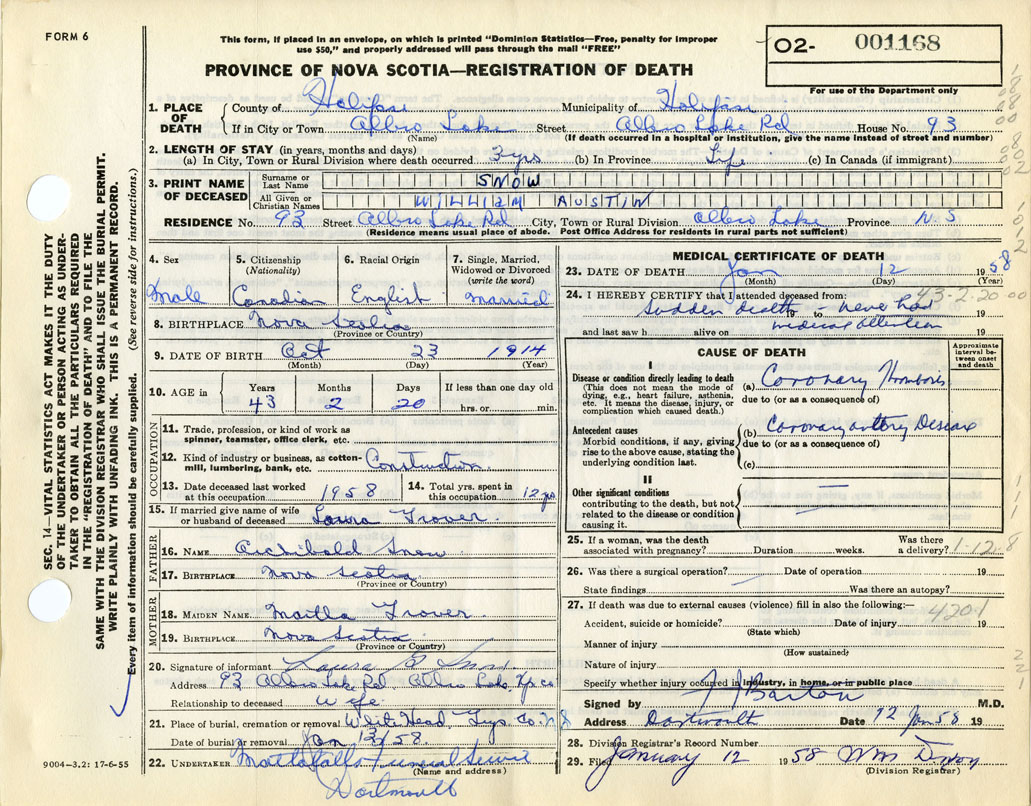 FORM 6
This form, if placed in an envelope, on which is printed "Dominion Statistics—Free, penalty for improper
use $50," and properly addressed will pass through the mail "FREE"
O2- 001168
For use of the Department only
PROVINCE OF NOVA SCOTIA—REGISTRATION OF DEATH
SEC. 14—VITAL STATISTICS ACT MAKES IT THE DUTY
OF THE UNDERTAKER OR PERSON ACTING AS UNDER-
TAKER TO OBTAIN ALL THE PARTICULARS REQUIRED
IN THE "REGISTRATION OF DEATH" AND TO FILE THE
SAME WITH THE DIVISION REGISTRAR WHO SHALL ISSUE THE BURIAL PERMIT.
WRITE PLAINLY WITH UNFADING INK. THIS IS A PERMANENT RECORD.
Every item of information should be carefully supplied. (See reverse side for instructions.)
1. PLACE OF DEATH County of Halifax Municipality of Halifax
If in City or Town Albro Lake Street Albro Lake Rd House No. 93
(Name) (If death occurred in a hospital or institution, give the name instead of street and number)
2. LENGTH OF STAY (in years, months and days)
(a) In City, Town or Rural Division where death occurred 3 yrs (b) In Province Life (c) In Canada (if immigrant)
3. PRINT NAME OF DECEASED Surname or Last Name SNOW
All Given or Christian Names WILLIAM AUSTIN
RESIDENCE No. 93 Street Albro Lake Rd City, Town or Rural Division Albro Lake Province N.S
(Residence means usual place of abode. Post Office Address for residents in rural parts not sufficient)
4. Sex 5. Citizenship (Nationality) 6. Racial Origin 7. Single, Married, Widowed or Divorced (write the word)
Male Canadian English Married
8. BIRTHPLACE Nova Scotia
(Province or Country)
9. DATE OF BIRTH Oct 23 1914
(Month) (Day) (Year)
10. AGE in Years Months Days If less than one day old
43 2 20 hrs. or min.
OCCUPATION
11. Trade, profession, or kind of work as
spinner, teamster, office clerk, etc.
12. Kind of industry or business, as cotton-
mill, lumbering, bank, etc. Construction
13. Date deceased last worked at this occupation 1958 14. Total yrs. spent in this occupation 12 yrs
15. If married give name of wife
or husband of deceased Laura Grover
FATHER
16. NAME Archibald Snow
17. BIRTHPLACE Nova Scotia
(Province or Country)
MOTHER
18. MAIDEN NAME Grover
19. BIRTHPLACE Nova Scotia
(Province or Country)
20. Signature of informant Laura Snow
Address 93 Albro Lake Rd Albro Lake Hfx Co
Relationship to deceased Wife
21. Place of burial, cremation or removal White Head Guys Co. N S
Date of burial or removal Jan 13/58.
22. UNDERTAKER Funeral Service
(Name and address)
Dartmouth
9004—3.2: 17-6-55
MEDICAL CERTIFICATE OF DEATH
23. DATE OF DEATH Jan 12 1958
(Month) (Day) (Year)
43-2-20-00
24. I HEREBY CERTIFY that I attended deceased from:
Sudden death 19 to never had 19
and last saw h alive on medical attention 19
CAUSE OF DEATH
Approximate interval between onset and death
I
Disease or condition directly leading to death
(This does not mean the mode of
dying, e.g., heart failure, asthenia,
etc. It means the disease, injury, or
complication which caused death.)
(a) Coronary thrombosis
due to (or as a consequence of)
Antecedent causes
Morbid conditions, if any, giving
rise to the above cause, stating the
underlying condition last.
(b) Coronary artery Disease
due to (or as a consequence of)
(c)
II
Other significant conditions
contributing to the death, but not
related to the disease or condition
causing it.
25. If a woman, was the death
associated with pregnancy? Duration weeks. Was there a delivery?
1-12-8
26. Was there a surgical operation? Date of operation 19
State findings Was there an autopsy?
27. If death was due to external causes (violence) fill in also the following:—
4201
Accident, suicide or homicide? Date of injury 19
(State which)
Manner of injury
(How sustained)
Nature of injury
Specify whether injury occurred in industry, in home, or in public place
Signed by Barton M.D.
Address Dartmouth Date 12 Jan 58 19
28. Division Registrar's Record Number
29. Filed January 12 1958 Wm Dixon
(Division Registrar)